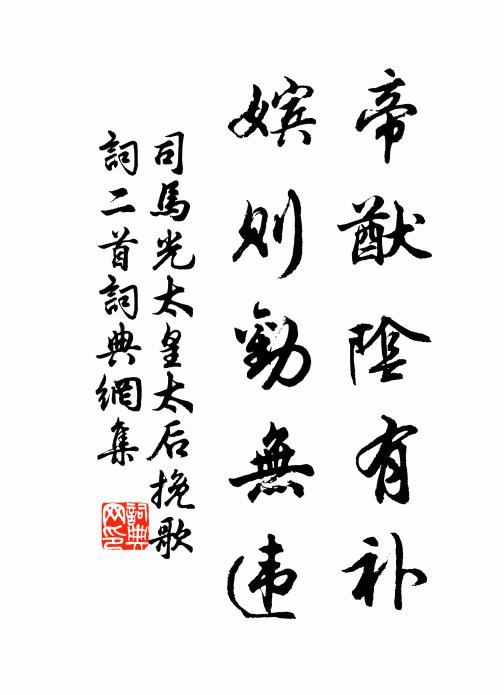 帝猷陰有补
嬪则勤無违
司馬光太皇太后挽歌
詞二首詞典網集
詞典網印